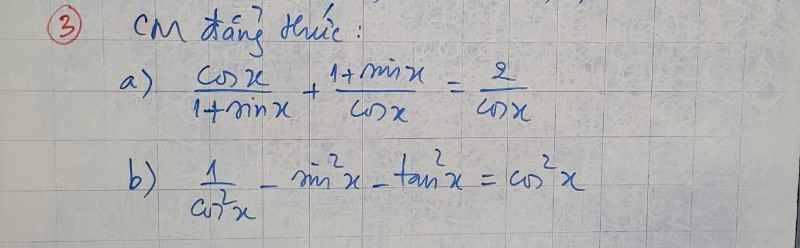 ③ CM đẳng thức :
a) cosx/(1+sinx) + (1+sinx)/cosx = 2/cosx
b) 1/cos²x - sin²x - tan²x = cos²x